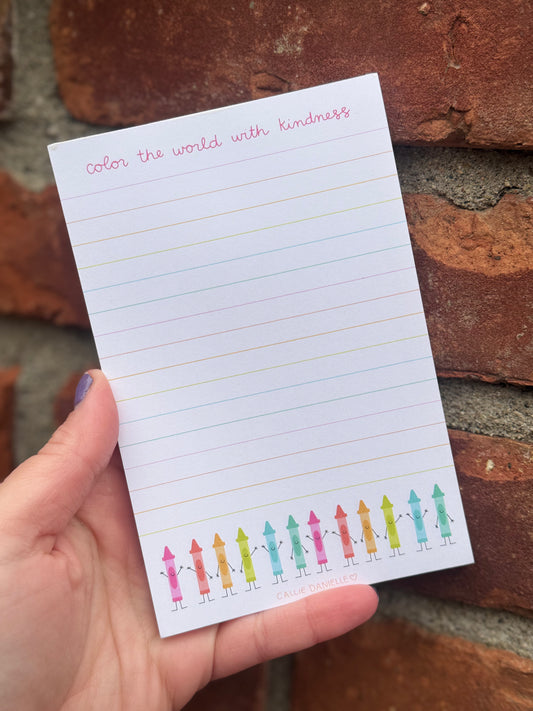 color the world with kindness
CALLIE DANIELLE♡